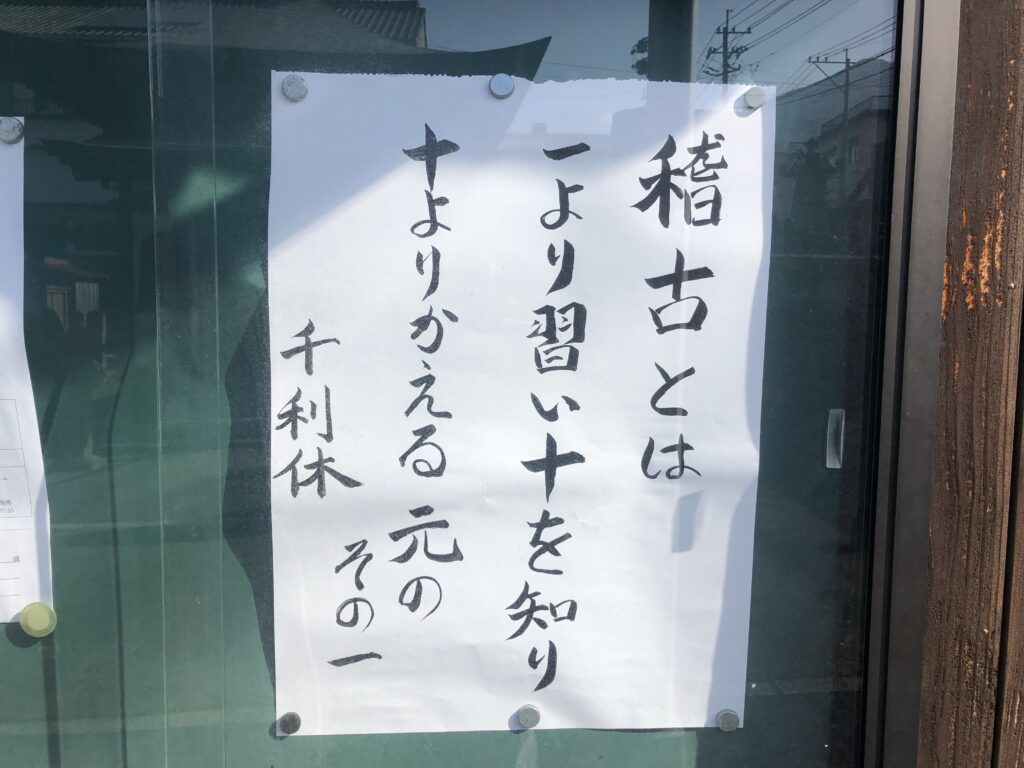 稽古とは
一より習い十を知り
十よりかえる元の
その一
千利休